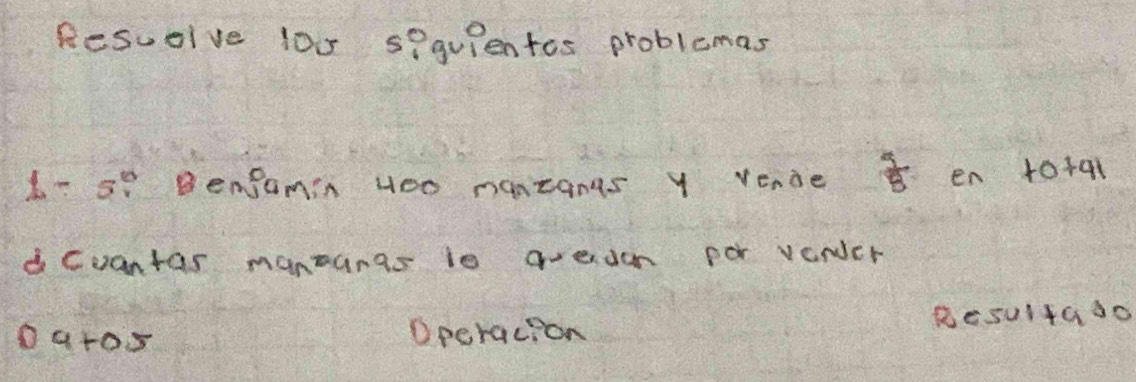 Resuelve los siguientes problemas
1- si Benjamin 400 manzanas y vende en total
¿Cuantas manzanas le quedan por vender
Datos Operación Resultado